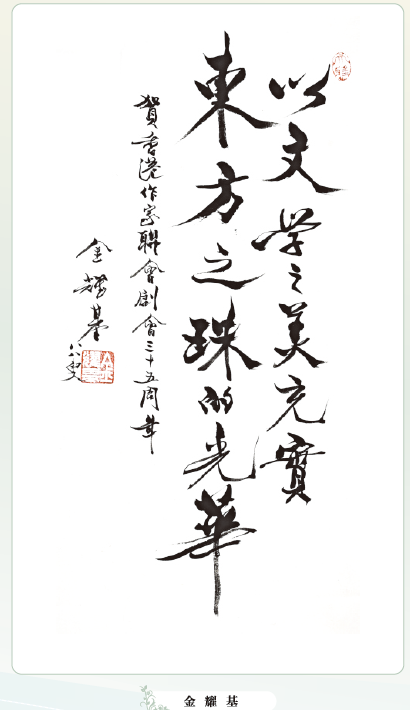 以文學之美充實
東方之珠的光華
賀香港作家聯會創會三十五周年
金耀基八八叟
金耀基